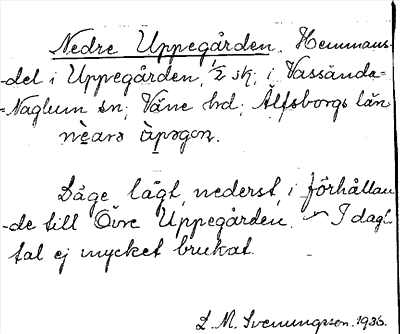 Nedre Uppegården. Hemmans-
-del i Uppegården, ½ sk; i Vassända-
=Naglum sn; Väne hd; Älfsborgs län
nèarə àpəgoṇ.
Låge lågt, nederst, i förhållan
-de till Övre Uppegården. — I dagl.
tal ej mycket brukat.
L. M. Svenungsson. 1936.